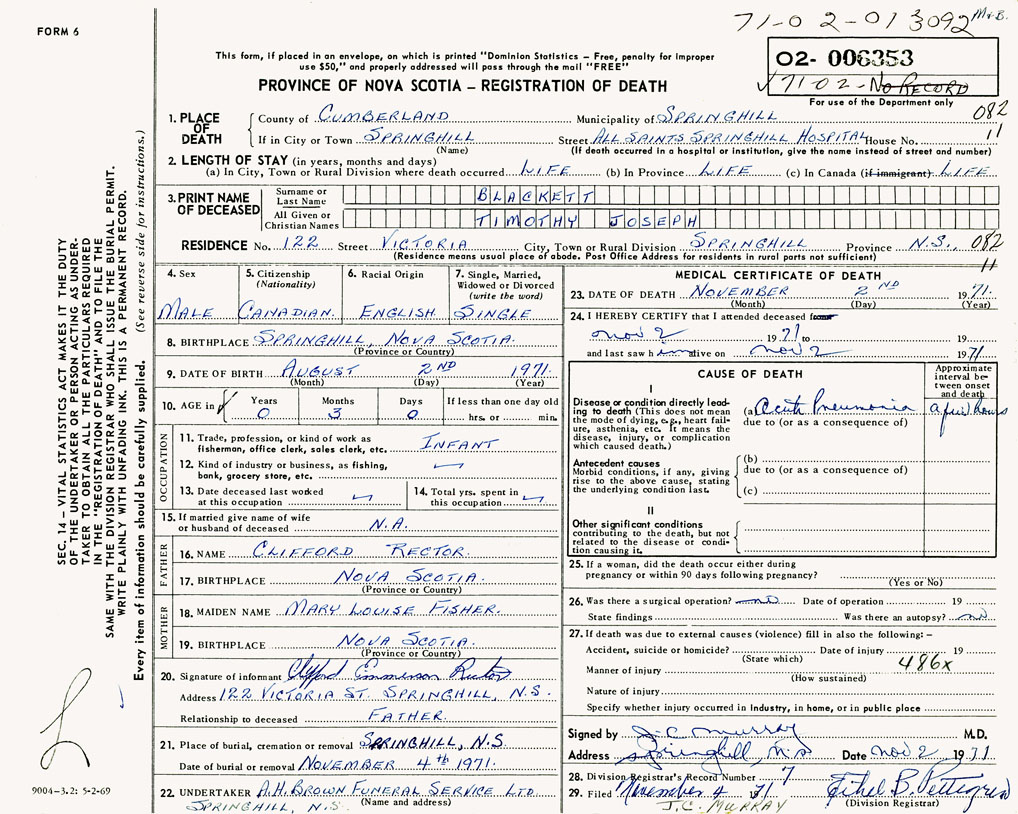 FORM 6
71-02-01 3092 M.B.
This form, if placed in an envelope, on which is printed "Dominion Statistics - Free, penalty for improper
use $50," and properly addressed will pass through the mail "FREE"
02- 006353
PROVINCE OF NOVA SCOTIA - REGISTRATION OF DEATH
71-02- No RECORD
For use of the Department only
1. PLACE OF DEATH
County of CUMBERLAND Municipality of SPRINGHILL 082
If in City or Town SPRINGHILL Street ALL SAINTS SPRINGHILL HOSPITAL House No. 11
(Name) (If death occurred in a hospital or institution, give the name instead of street and number)
2. LENGTH OF STAY (in years, months and days)
(a) In City, Town or Rural Division where death occurred LIFE (b) In Province LIFE (c) In Canada (if immigrant) LIFE
3. PRINT NAME OF DECEASED
Surname or Last Name BLACKETT
All Given or Christian Names TIMOTHY JOSEPH
RESIDENCE No. 122 Street VICTORIA City, Town or Rural Division SPRINGHILL Province N.S. 082
(Residence means usual place of abode. Post Office Address for residents in rural parts not sufficient) 11
4. Sex
MALE
5. Citizenship
(Nationality)
CANADIAN.
6. Racial Origin
ENGLISH
7. Single, Married,
Widowed or Divorced
(write the word)
SINGLE
8. BIRTHPLACE SPRINGHILL, NOVA SCOTIA.
(Province or Country)
9. DATE OF BIRTH AUGUST 2ND 1971.
(Month) (Day) (Year)
10. AGE in Years Months Days If less than one day old
0 3 0 hrs. or min.
OCCUPATION
11. Trade, profession, or kind of work as
fisherman, office clerk, sales clerk, etc. INFANT
12. Kind of industry or business, as fishing,
bank, grocery store, etc.
13. Date deceased last worked
at this occupation
14. Total yrs. spent in
this occupation
15. If married give name of wife
or husband of deceased N.A.
FATHER
16. NAME CLIFFORD RECTOR.
17. BIRTHPLACE NOVA SCOTIA.
(Province or Country)
MOTHER
18. MAIDEN NAME MARY LOUISE FISHER.
19. BIRTHPLACE NOVA SCOTIA.
(Province or Country)
20. Signature of informant Clifford Emmerson Rector
Address 122 VICTORIA ST. SPRINGHILL, N.S.
Relationship to deceased FATHER.
21. Place of burial, cremation or removal SPRINGHILL, N.S.
Date of burial or removal NOVEMBER 4th 1971.
22. UNDERTAKER A.H. BROWN FUNERAL SERVICE LTD.
(Name and address)
SPRINGHILL, N.S.
MEDICAL CERTIFICATE OF DEATH
23. DATE OF DEATH NOVEMBER 2ND 1971.
(Month) (Day) (Year)
24. I HEREBY CERTIFY that I attended deceased from
nov 2 1971 to 19
and last saw him alive on nov 2 1971
CAUSE OF DEATH
Approximate
interval be-
tween onset
and death
I
Disease or condition directly lead-
ing to death (This does not mean
the mode of dying, e.g., heart fail-
ure, asthenia, etc. It means the
disease, injury, or complication
which caused death.)
(a) Acute Pneumonia a few hours
due to (or as a consequence of)
Antecedent causes
Morbid conditions, if any, giving
rise to the above cause, stating
the underlying condition last.
(b)
due to (or as a consequence of)
(c)
II
Other significant conditions
contributing to the death, but not
related to the disease or condi-
tion causing it.
25. If a woman, did the death occur either during
pregnancy or within 90 days following pregnancy?
(Yes or No)
26. Was there a surgical operation? no Date of operation 19
State findings Was there an autopsy? no
27. If death was due to external causes (violence) fill in also the following: -
Accident, suicide or homicide? Date of injury 19
(State which)
486x
Manner of injury
(How sustained)
Nature of injury
Specify whether injury occurred in Industry, in home, or in public place
Signed by J.C. Murray M.D.
Address Springhill, N.S Date nov 2 1971
28. Division Registrar's Record Number 7
29. Filed November 4 1971 Ethel B. Pettegrew
(Division Registrar)
J.C. MURRAY
SEC. 14 - VITAL STATISTICS ACT MAKES IT THE DUTY
OF THE UNDERTAKER OR PERSON ACTING AS UNDER-
TAKER TO OBTAIN ALL THE PARTICULARS REQUIRED
IN THE "REGISTRATION OF DEATH" AND TO FILE THE
SAME WITH THE DIVISION REGISTRAR WHO SHALL ISSUE THE BURIAL PERMIT.
WRITE PLAINLY WITH UNFADING INK. THIS IS A PERMANENT RECORD.
Every item of information should be carefully supplied. (See reverse side for instructions.)
9004-3.2: 5-2-69